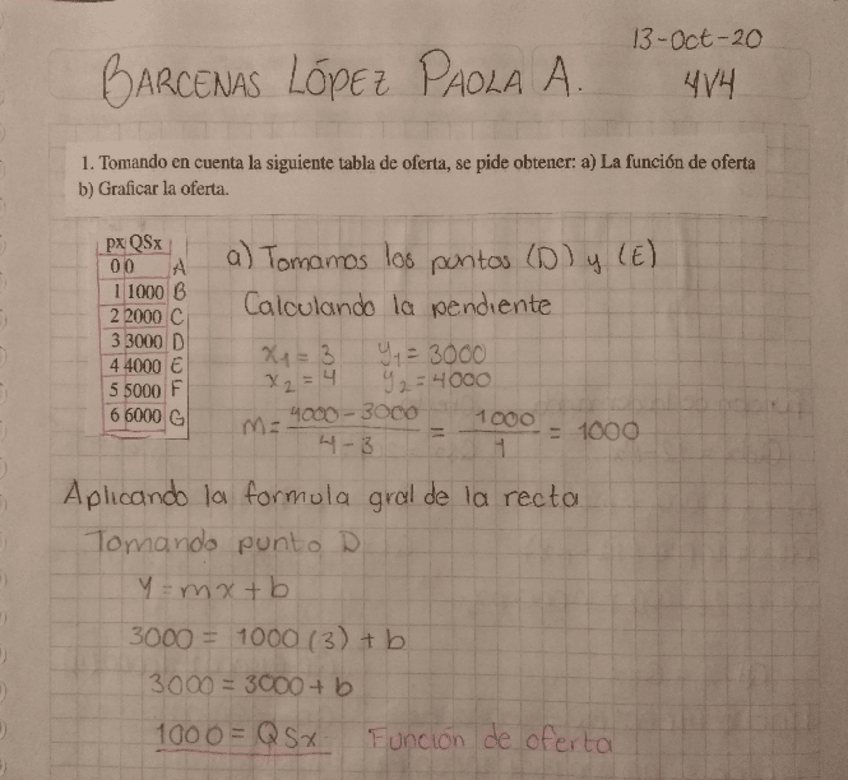 13-Oct-20
BARCENAS LÓPEZ PAOLA A.
4V4
1. Tomando en cuenta la siguiente tabla de oferta, se pide obtener: a) La función de oferta
b) Graficar la oferta.
px QSx
0 0 A
1 1000 B
2 2000 C
3 3000 D
4 4000 E
5 5000 F
6 6000 G
a) Tomamos los puntos (D) y (E)
Calculando la pendiente
x1 = 3 y1 = 3000
x2 = 4 y2 = 4000
m = (4000 - 3000) / (4 - 3) = 1000 / 1 = 1000
Aplicando la formula gral de la recta
Tomando punto D
Y = mx + b
3000 = 1000 (3) + b
3000 = 3000 + b
1000 = QSx Función de oferta